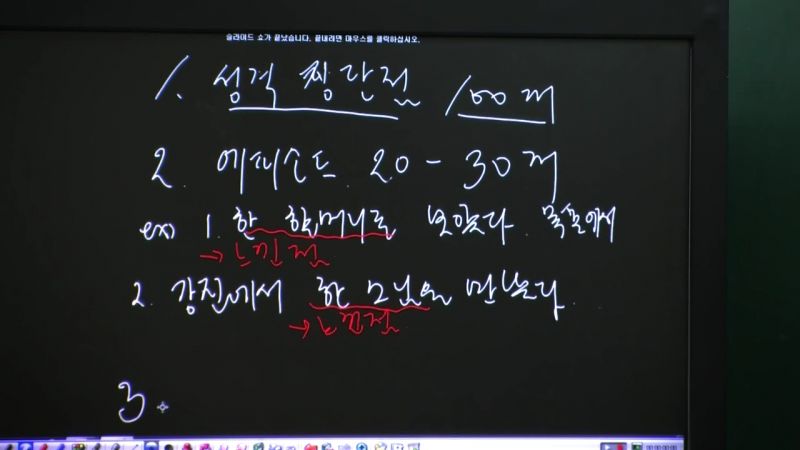 슬라이드 쇼가 끝났습니다. 끝내려면 마우스를 클릭하십시오.
1. 성격 장단점 100개
2. 에피소드 20-30개
ex) 1. 한 할머니를 보았다. 목포에서
→ 느낀점
2. 강진에서 한 모님을 만났다.
→ 느낀점
3.